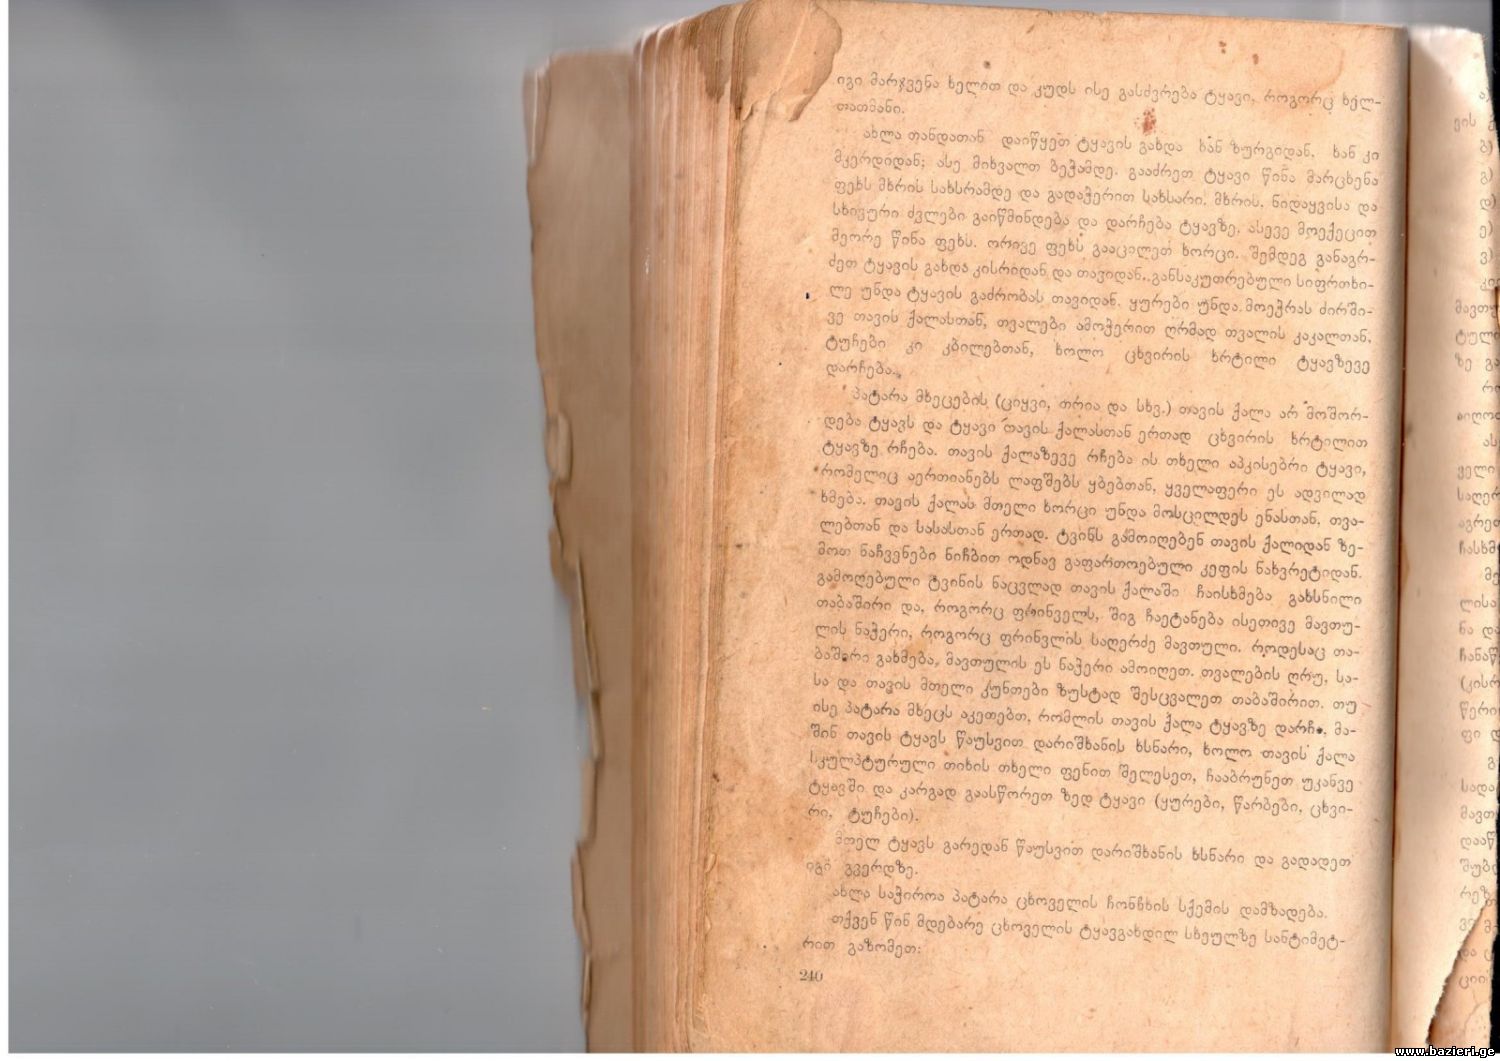 იგი მარჯვენა ხელით და კუდს ისე გასძვრება ტყავი, როგორც ხელ-
თათმანი.
ახლა თანდათან დაიწყეთ ტყავის გახდა ხან ზურგიდან, ხან კი
მკერდიდან; ასე მიხვალთ ბეჭამდე. გააძრეთ ტყავი წინა მარცხენა
ფეხს მხრის სახსრამდე და გადაჭერით სახსარი. მხრის, ნიდაყვისა და
სხივური ძვლები გაიწმინდება და დარჩება ტყავზე. ასევე მოექეცით
მეორე წინა ფეხს. ორივე ფეხს გააცალეთ ხორცი. შემდეგ განაგრ-
ძეთ ტყავის გახდა კისრიდან და თავიდან. განსაკუთრებული სიფრთხი-
ლე უნდა ტყავის გაძრობას თავიდან. ყურები უნდა მოეჭრას ძირში-
ვე თავის ქალასთან, თვალები ამოჭერით ღრმად თვალის კაკალთან,
ტუჩები კი კბილებთან, ხოლო ცხვირის ხრტილი ტყავზევე
დარჩება.
პატარა მხეცების (ციყვი, თრია და სხვ.) თავის ქალა არ მოშორ-
დება ტყავს და ტყავი თავის ქალასთან ერთად ცხვირის ხრტილით
ტყავზე რჩება. თავის ქალაზევე რჩება ის თხელი აპკისებრი ტყავი,
რომელიც აერთიანებს ლაფშებს ყბებთან, ყველაფერი ეს ადვილად
ხმება. თავის ქალას მთელი ხორცი უნდა მოსცილდეს ენასთან, თვა-
ლებთან და სასასთან ერთად. ტვინს გამოიღებენ თავის ქალიდან ზე-
მოთ ნაჩვენები ნიჩბით ოდნავ გაფართოებული კეფის ნახვრეტიდან.
გამოღებული ტვინის ნაცვლად თავის ქალაში ჩაისხმება გახსნილი
თაბაშირი და, როგორც ფრინველს, შიგ ჩაეტანება ისეთივე მავთუ-
ლის ნაჭერი, როგორც ფრინვლის საღერძე მავთული. როდესაც თა-
ბაშირი გახმება, მავთულის ეს ნაჭერი ამოიღეთ. თვალების ღრუ, სა-
სა და თავის მთელი კუნთები ზუსტად შესცვალეთ თაბაშირით. თუ
ისე პატარა მხეცს აკეთებთ, რომლის თავის ქალა ტყავზე დარჩა, მა-
შინ თავის ტყავს წაუსვით დარიშხანის ხსნარი, ხოლო თავის ქალა
სკულპტურული თიხის თხელი ფენით შელესეთ, ჩააბრუნეთ უკანვე
ტყავში და კარგად გაასწორეთ ზედ ტყავი (ყურები, წარბები, ცხვი-
რი, ტუჩები).
მთელ ტყავს გარედან წაუსვით დარიშხანის ხსნარი და გადადეთ
იგი გვერდზე.
ახლა საჭიროა პატარა ცხოველის ჩონჩხის სქემის დამზადება.
თქვენ წინ მდებარე ცხოველის ტყავგახდილ სხეულზე სანტიმეტ-
რით გაზომეთ:
240
www.bazieri.ge